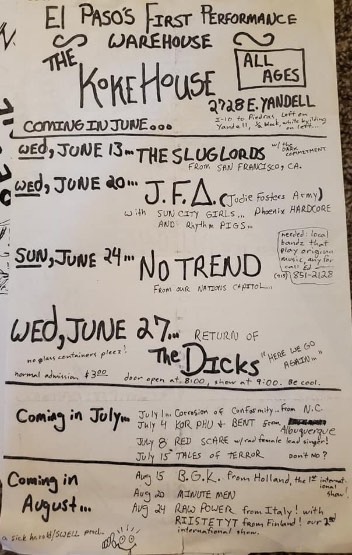 El Paso's First Performance
Warehouse
The
Koke House
ALL AGES
2728 E. YANDELL
I-10 to Piedras, left on
Yandell, ½ block, white building
on left...
COMING IN JUNE...
WED, JUNE 13... THE SLUGLORDS w/ the DARK COMMITMENT
FROM SAN FRANCISCO, CA.
WED, JUNE 20... J.F.A. (Judie Fosters Army)
with SUN CITY GIRLS... Phoenix HARDCORE
AND Rhythm PIGS...
needed: local
bands that
play original
music, any for
call Ed
(915) 851-2128
SUN, JUNE 24... NO TREND
FROM OUR NATIONS CAPITOL...
WED, JUNE 27... RETURN OF
The DICKS "HERE WE GO AGAIN..."
no glass containers pleez!
normal admission $3.00 door open at 8:00, show at 9:00. Be cool.
Coming in July...
July 1... Corrosion of Conformity... from N.C.
July 4 KOR PHU & BENT from Albuquerque
July 8 RED SCARE w/rad female lead singer!
July 15 TALES OF TERROR don't no?
Coming in
August...
Aug 15 B.G.K. from Holland, the 1st international show!
Aug 20 MINUTE MEN
Aug 24 RAW POWER from Italy! with
RIISTETYT from Finland! our 2nd
international show.